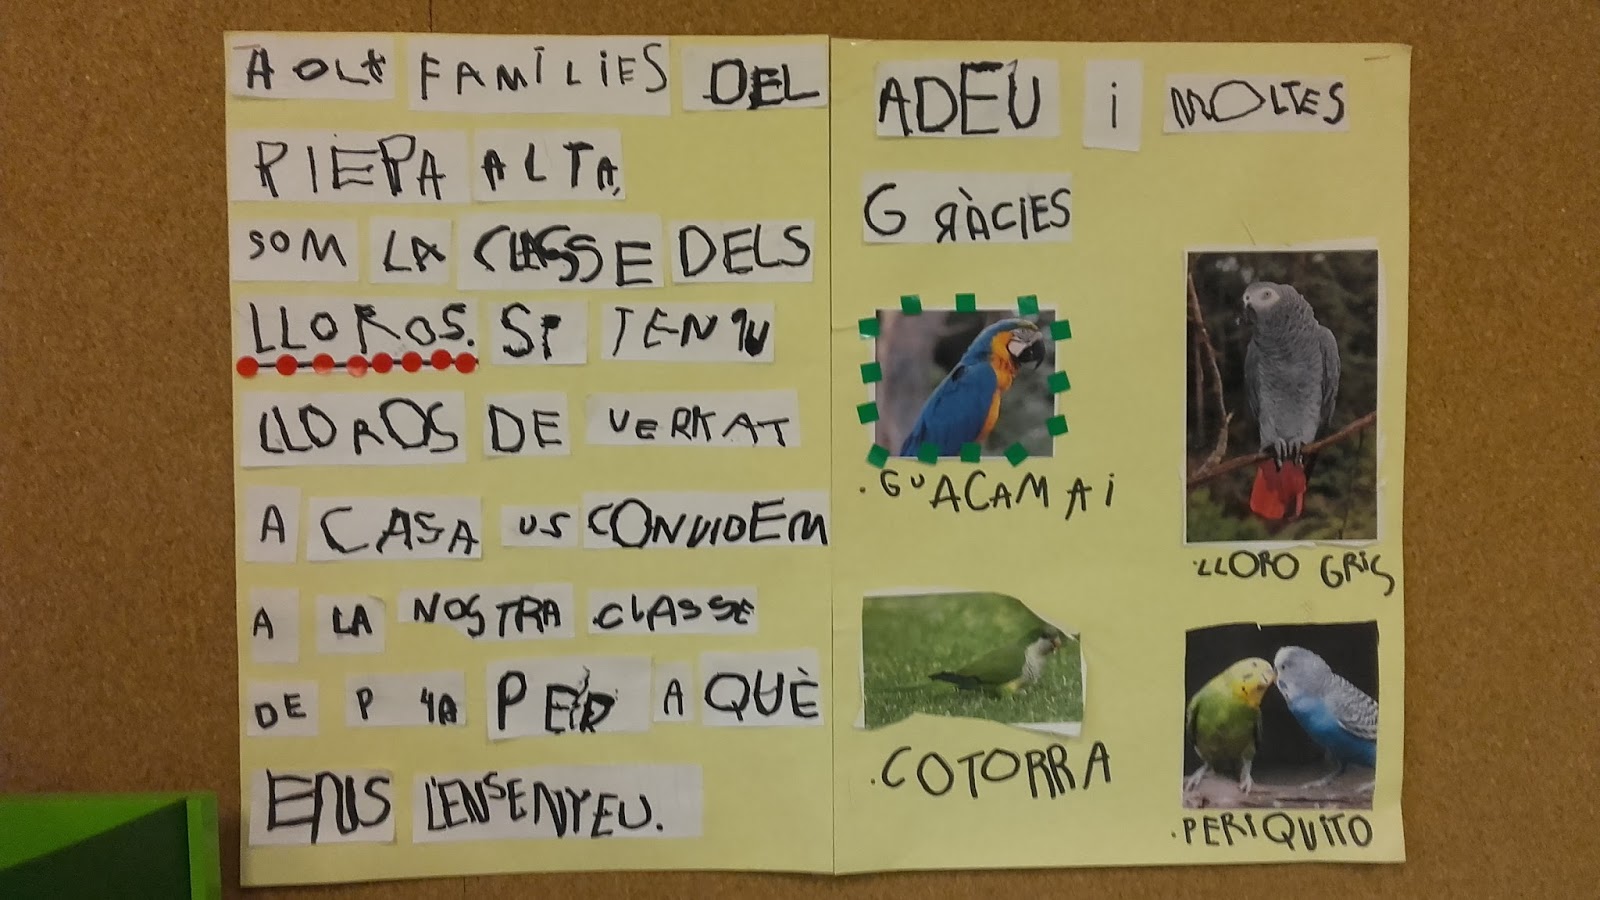 AOLA FAMÍLIES DEL
PIEPA ALTA,
SOM LA CLASSE DELS
LLOROS. SI TENIU
LLOROS DE VERRAT
A CASA US CONVIDEM
A LA NOSTRA CLASSE
DE P4A PER A QUÈ
ENS L'ENSENYEU.
ADEU i MOLTES
GRÀCIES
.GUACAMAi
.LLORO GRiS
.COTORRA
.PERiQUiTO